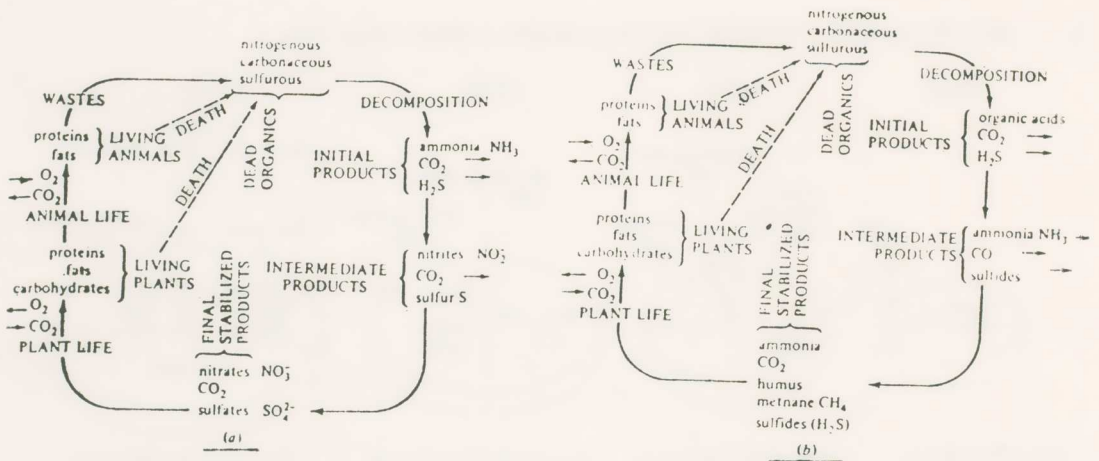 nitrogenous
carbonaceous
sulfurous
WASTES
DECOMPOSITION
proteins
fats
LIVING
ANIMALS
DEATH
DEATH
DEAD
ORGANICS
INITIAL
PRODUCTS
ammonia NH₃
CO₂
H₂S
O₂
CO₂
ANIMAL LIFE
proteins
fats
carbohydrates
LIVING
PLANTS
INTERMEDIATE
PRODUCTS
nitrites NO₂⁻
CO₂
sulfur S
O₂
CO₂
PLANT LIFE
FINAL
STABILIZED
PRODUCTS
nitrates NO₃⁻
CO₂
sulfates SO₄²⁻
(a)
nitrogenous
carbonaceous
sulfurous
WASTES
DECOMPOSITION
proteins
fats
LIVING
ANIMALS
DEATH
DEATH
DEAD
ORGANICS
INITIAL
PRODUCTS
organic acids
CO₂
H₂S
O₂
CO₂
ANIMAL LIFE
proteins
fats
carbohydrates
LIVING
PLANTS
INTERMEDIATE
PRODUCTS
ammonia NH₃
CO
sulfides
O₂
CO₂
PLANT LIFE
FINAL
STABILIZED
PRODUCTS
ammonia
CO₂
humus
methane CH₄
sulfides (H₂S)
(b)